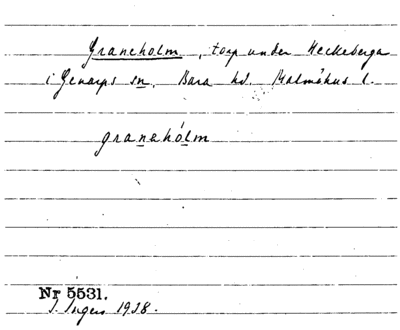 Graneholm, torp under Heckeberga
i Genarps sn. Bara hd. Malmöhus l.
granehólm
Nr 5531.
I. Ingers 1938.